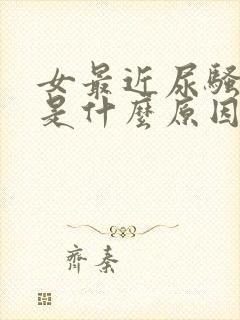 女最近尿騷
是什麼原因
齊秦